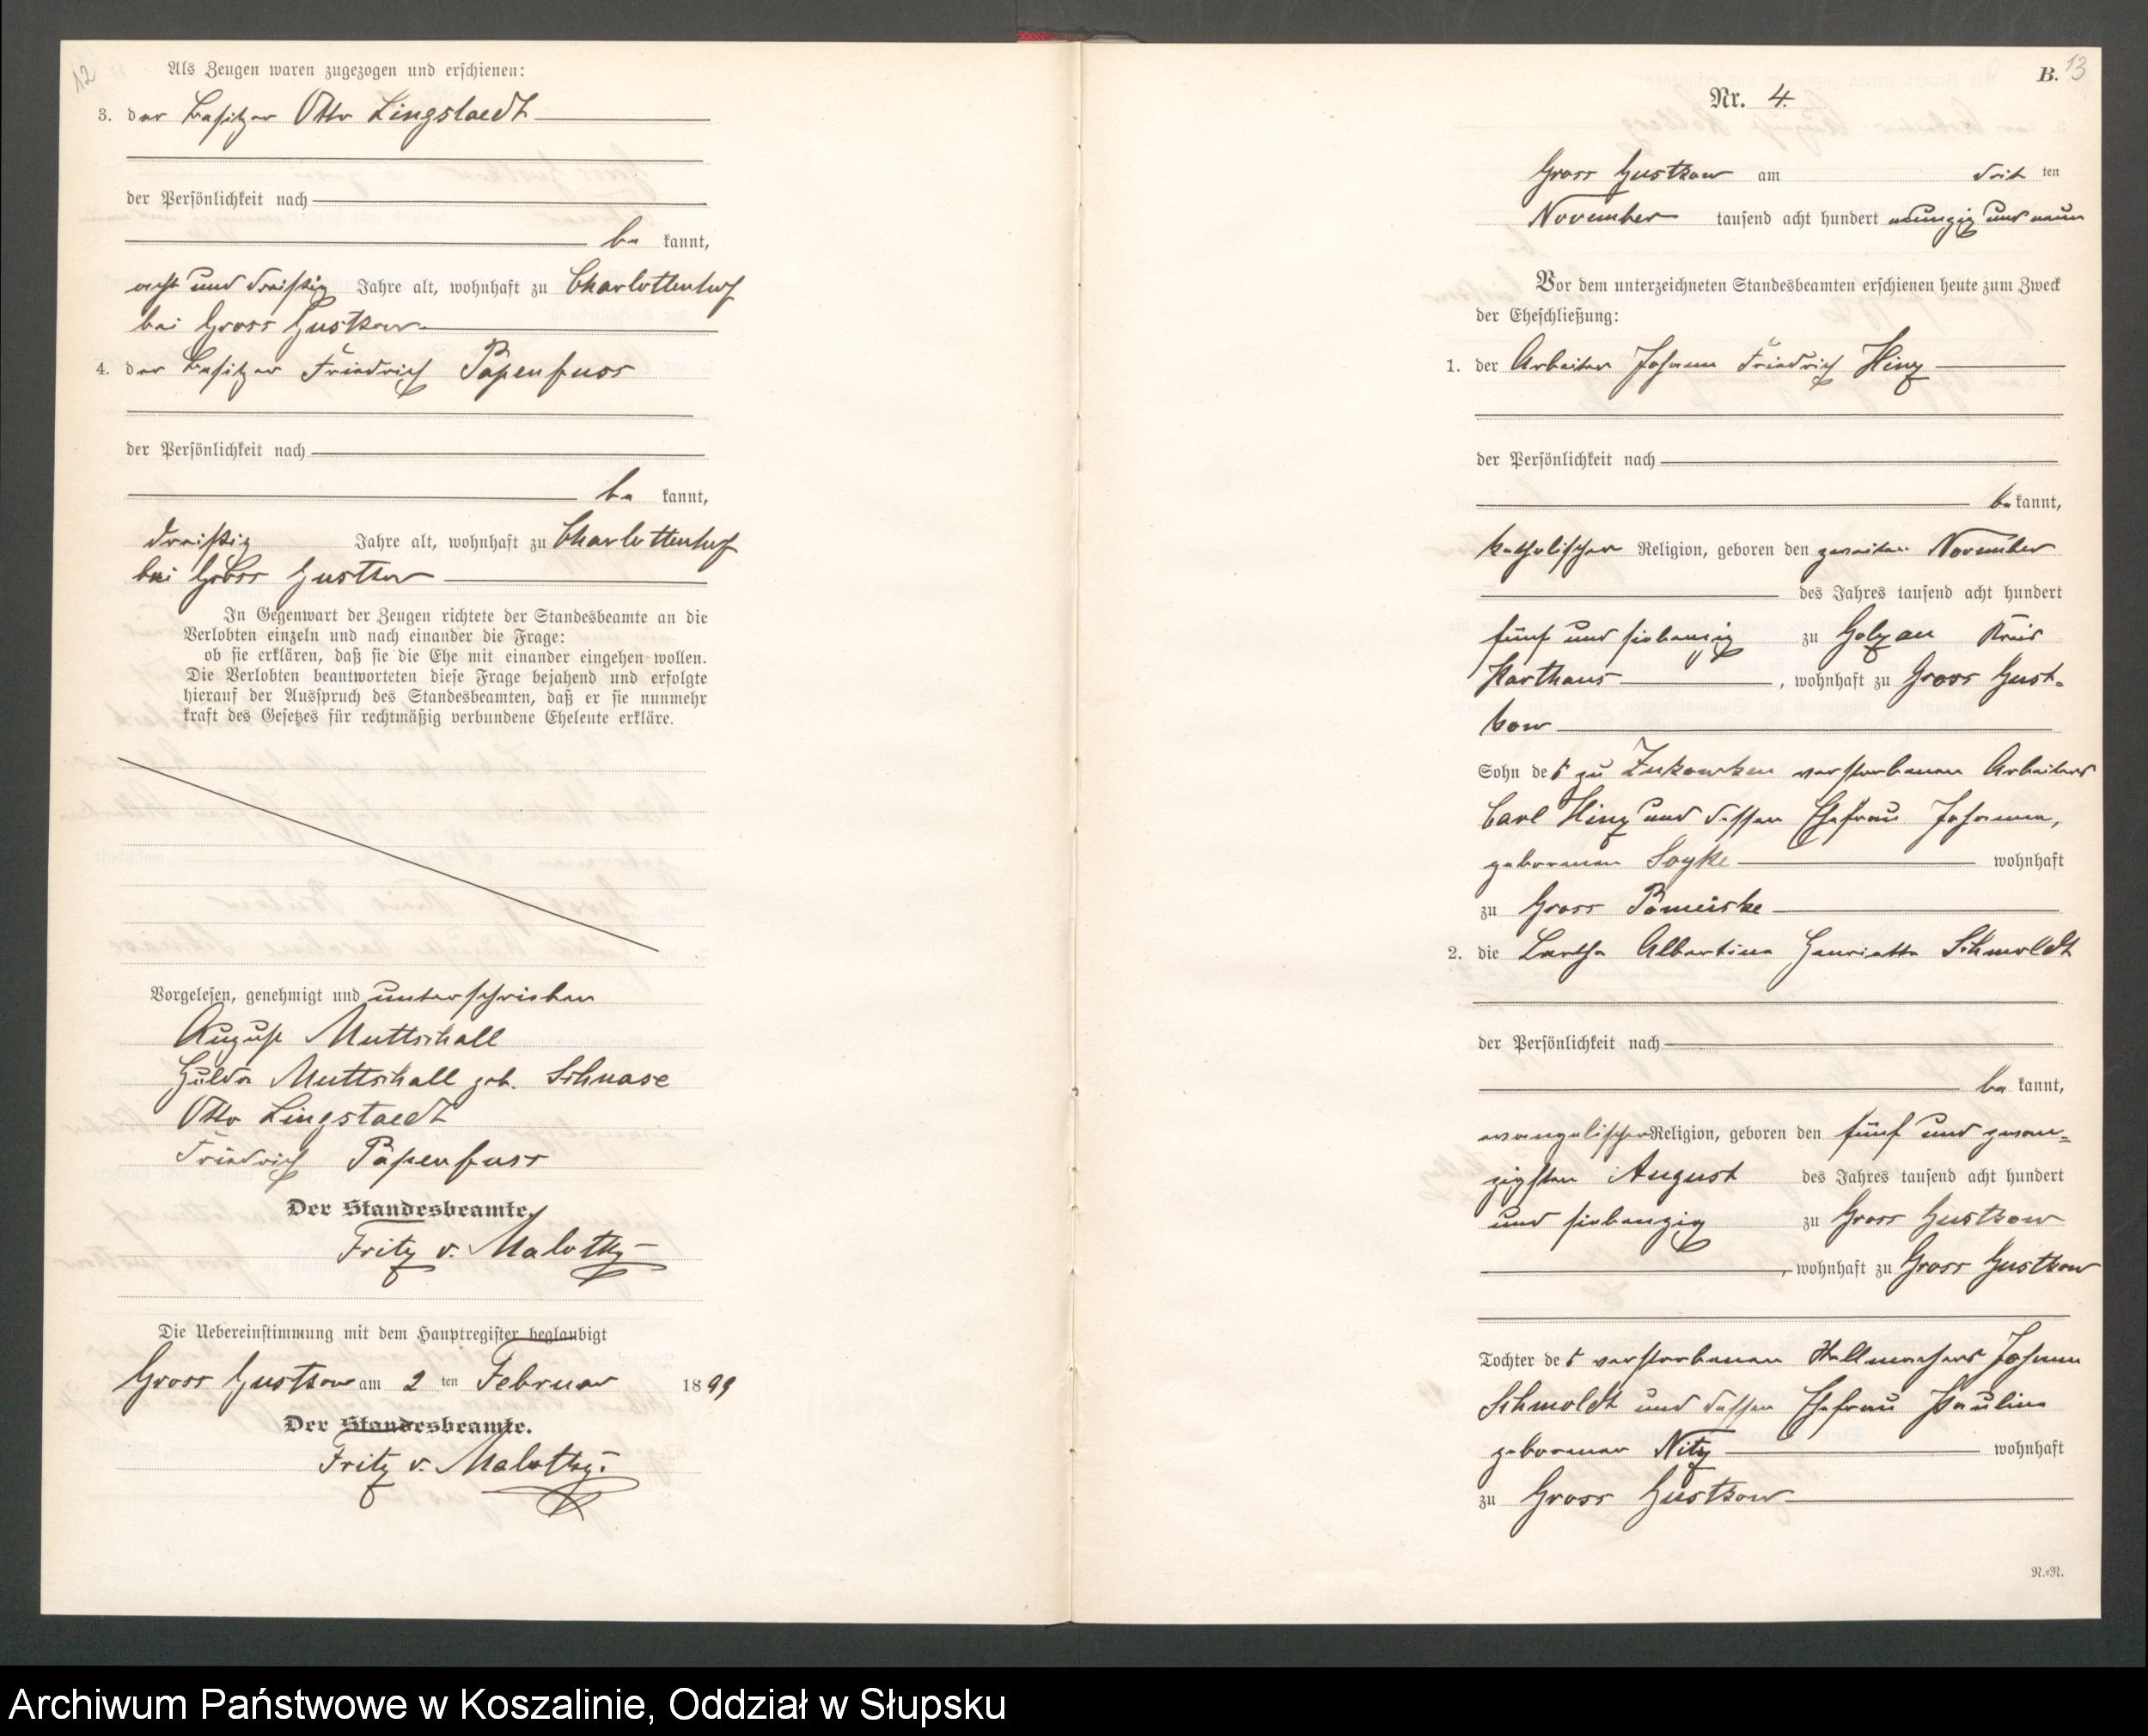 12
Als Zeugen waren zugezogen und erschienen:
3. der Besitzer Otto Lingstaedt
der Persönlichkeit nach
be kannt,
acht und dreißig Jahre alt, wohnhaft zu Charlottenhof
bei Gross Gustkow
4. der Besitzer Friedrich Papenfuss
der Persönlichkeit nach
be kannt,
dreißig Jahre alt, wohnhaft zu Charlottenhof
bei Gross Gustkow
In Gegenwart der Zeugen richtete der Standesbeamte an die
Verlobten einzeln und nach einander die Frage:
ob sie erklären, daß sie die Ehe mit einander eingehen wollen.
Die Verlobten beantworteten diese Frage bejahend und erfolgte
hierauf der Ausspruch des Standesbeamten, daß er sie nunmehr
kraft des Gesetzes für rechtmäßig verbundene Eheleute erkläre.
Vorgelesen, genehmigt und unterschrieben
August Muttschall
Hulda Muttschall geb. Schnase
Otto Lingstaedt
Friedrich Papenfuss
Der Standesbeamte.
Fritz v. Malotky
Die Uebereinstimmung mit dem Hauptregister beglaubigt
Gross Gustkow am 2 ten Februar 1899
Der Standesbeamte.
Fritz v. Malotky.
B. 13
Nr. 4.
Gross Gustkow am drit ten
November tausend acht hundert neunzig und neun
Vor dem unterzeichneten Standesbeamten erschienen heute zum Zweck
der Eheschließung:
1. der Arbeiter Johann Friedrich Hinz
der Persönlichkeit nach
be kannt,
katholischer Religion, geboren den zweiten November
des Jahres tausend acht hundert
fünf und siebenzig zu Golzau Kreis
Karthaus, wohnhaft zu Gross Gust-
kow
Sohn des zu Zukowken verstorbenen Arbeiters
Carl Hinz und dessen Ehefrau Johanna,
geborenen Soyke wohnhaft
zu Gross Pomeiske
2. die Bertha Albertine Henriette Schmoldt
der Persönlichkeit nach
be kannt,
evangelischer Religion, geboren den fünf und zwan-
zigsten August des Jahres tausend acht hundert
und siebenzig zu Gross Gustkow
, wohnhaft zu Gross Gustkow
Tochter des verstorbenen Stellmachers Johann
Schmoldt und dessen Ehefrau Pauline
geborener Nitz wohnhaft
zu Gross Gustkow
N.=N.
Archiwum Państwowe w Koszalinie, Oddział w Słupsku